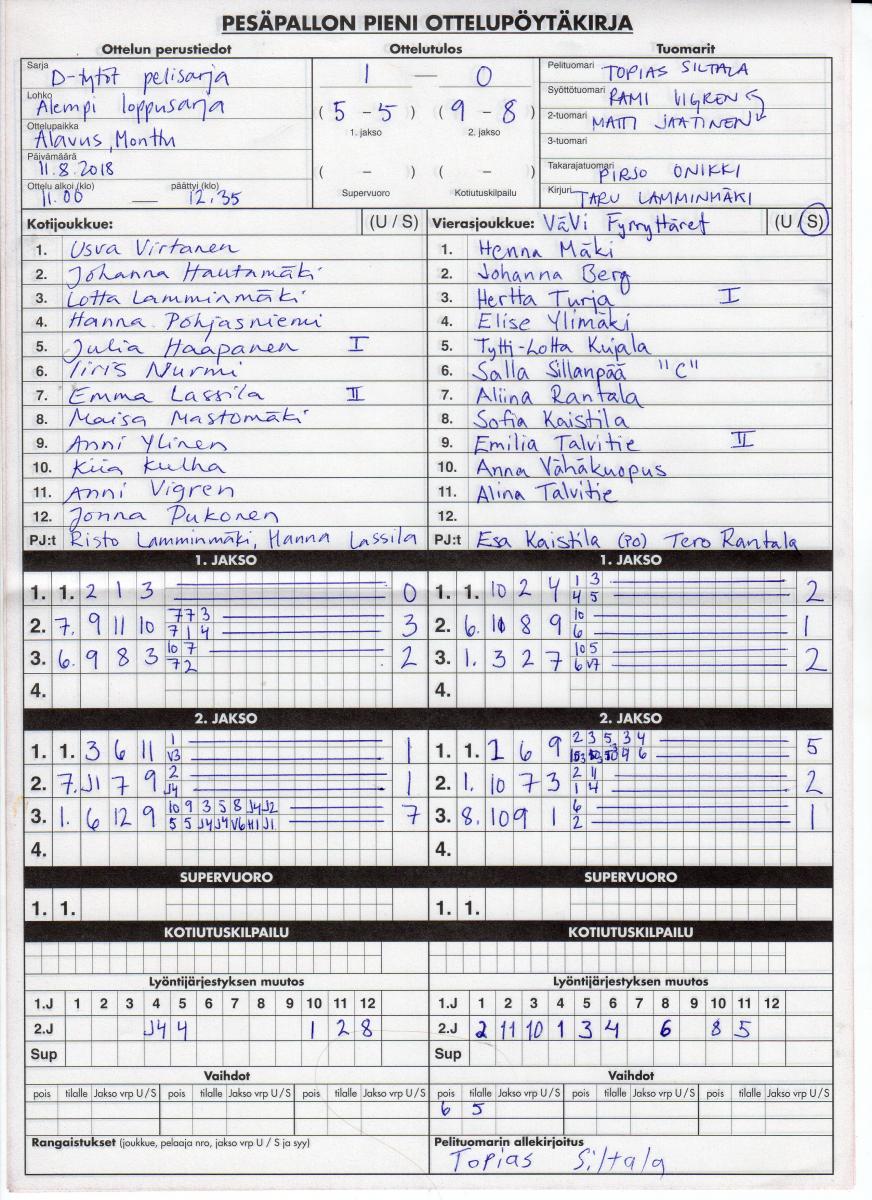 PESÄPALLON PIENI OTTELUPÖYTÄKIRJA
Ottelun perustiedot Ottelutulos Tuomarit
Sarja D-tytöt pelisarja 1 — 0 Pelituomari TOPIAS SILTALA
Lohko Alempi loppusarja (5 - 5) (9 - 8) Syöttötuomari RAMI VIGREN
Ottelupaikka Alavus, Monttu 1. jakso 2. jakso 2-tuomari MATTI JAATINEN
3-tuomari
Päivämäärä 11.8.2018 ( - ) ( - ) Takarajatuomari PIRJO ONIKKI
Ottelu alkoi (klo) 11.00 — päättyi (klo) 12.35 Supervuoro Kotiutuskilpailu Kirjuri TARU LAMMINMÄKI
Kotijoukkue: (U / S) Vierasjoukkue: VäVi Fyrryttäret (U / S)
1. Usva Virtanen 1. Henna Mäki
2. Johanna Hautamäki 2. Johanna Berg
3. Lotta Lamminmäki 3. Hertta Turja I
4. Hanna Pohjasniemi 4. Elise Ylimäki
5. Julia Haapanen I 5. Tytti-Lotta Kujala
6. Iiris Nurmi 6. Salla Sillanpää "C"
7. Emma Lassila II 7. Aliina Rantala
8. Maisa Mastomäki 8. Sofia Kaistila
9. Anni Ylinen 9. Emilia Talvitie II
10. Kiia Kulha 10. Anna Vähäkuopus
11. Anni Vigren 11. Alina Talvitie
12. Jonna Pukonen 12.
PJ:t Risto Lamminmäki, Hanna Lassila PJ:t Esa Kaistila (PO) Tero Rantala
1. JAKSO 1. JAKSO
1. 1. 2 1 3 0 1. 1. 10 2 4 1 3 2
4 5
2. 7. 9 11 10 7 7 3 3 2. 6. 8 9 10 1
7 1 4 6
3. 6. 9 8 3 10 7 2 3. 1. 3 2 7 10 5 2
7 2 6 V7
4. 4.
2. JAKSO 2. JAKSO
1. 1. 3 6 11 1 1 1. 1. 1 6 9 2 3 5 3 4 5
V3 9 6
2. 7. J1 7 9 2 1 2. 1. 10 7 3 2 11 2
J4 1 4
3. 1. 6 12 9 10 9 3 5 8 J4 J2 7 3. 8. 10 9 1 6 1
5 5 J4 J4 V6 H1 J1 2
4. 4.
SUPERVUORO SUPERVUORO
1. 1. 1. 1.
KOTIUTUSKILPAILU KOTIUTUSKILPAILU
Lyöntijärjestyksen muutos Lyöntijärjestyksen muutos
1.J 1 2 3 4 5 6 7 8 9 10 11 12 1.J 1 2 3 4 5 6 7 8 9 10 11 12
2.J J4 4 1 2 8 2.J 2 11 10 1 3 4 6 8 5
Sup Sup
Vaihdot Vaihdot
pois tilalle Jakso vrp U / S pois tilalle Jakso vrp U / S pois tilalle Jakso vrp U / S pois tilalle Jakso vrp U / S pois tilalle Jakso vrp U / S pois tilalle Jakso vrp U / S
6 5
Rangaistukset (joukkue, pelaaja nro, jakso vrp U / S ja syy) Pelituomarin allekirjoitus
Topias Siltala